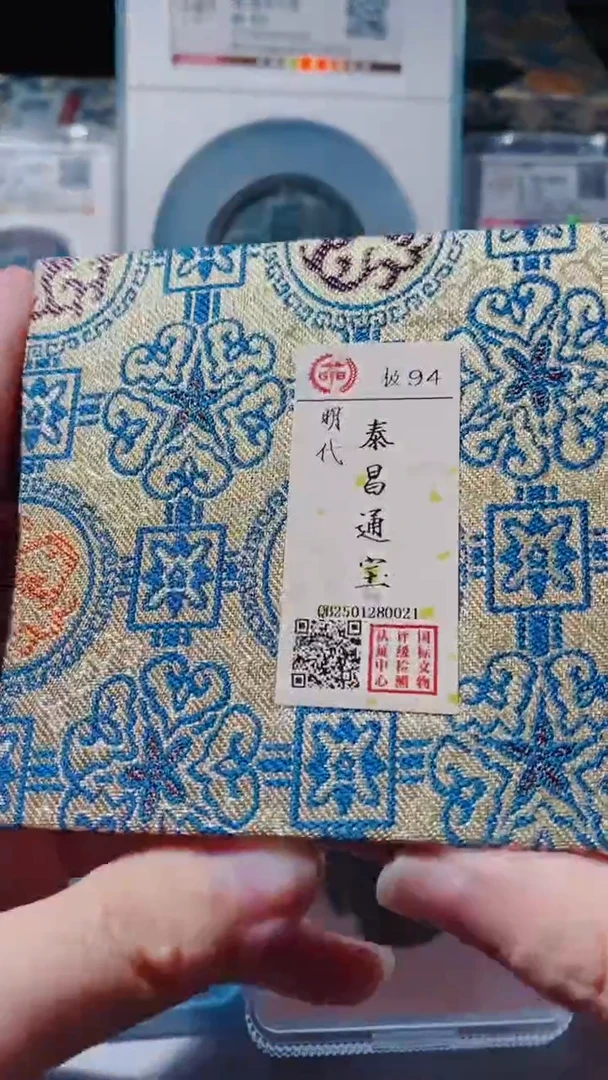 GTB
极94
明代
泰昌通宝
QB2501280021
国标文物
评级检测
认证中心